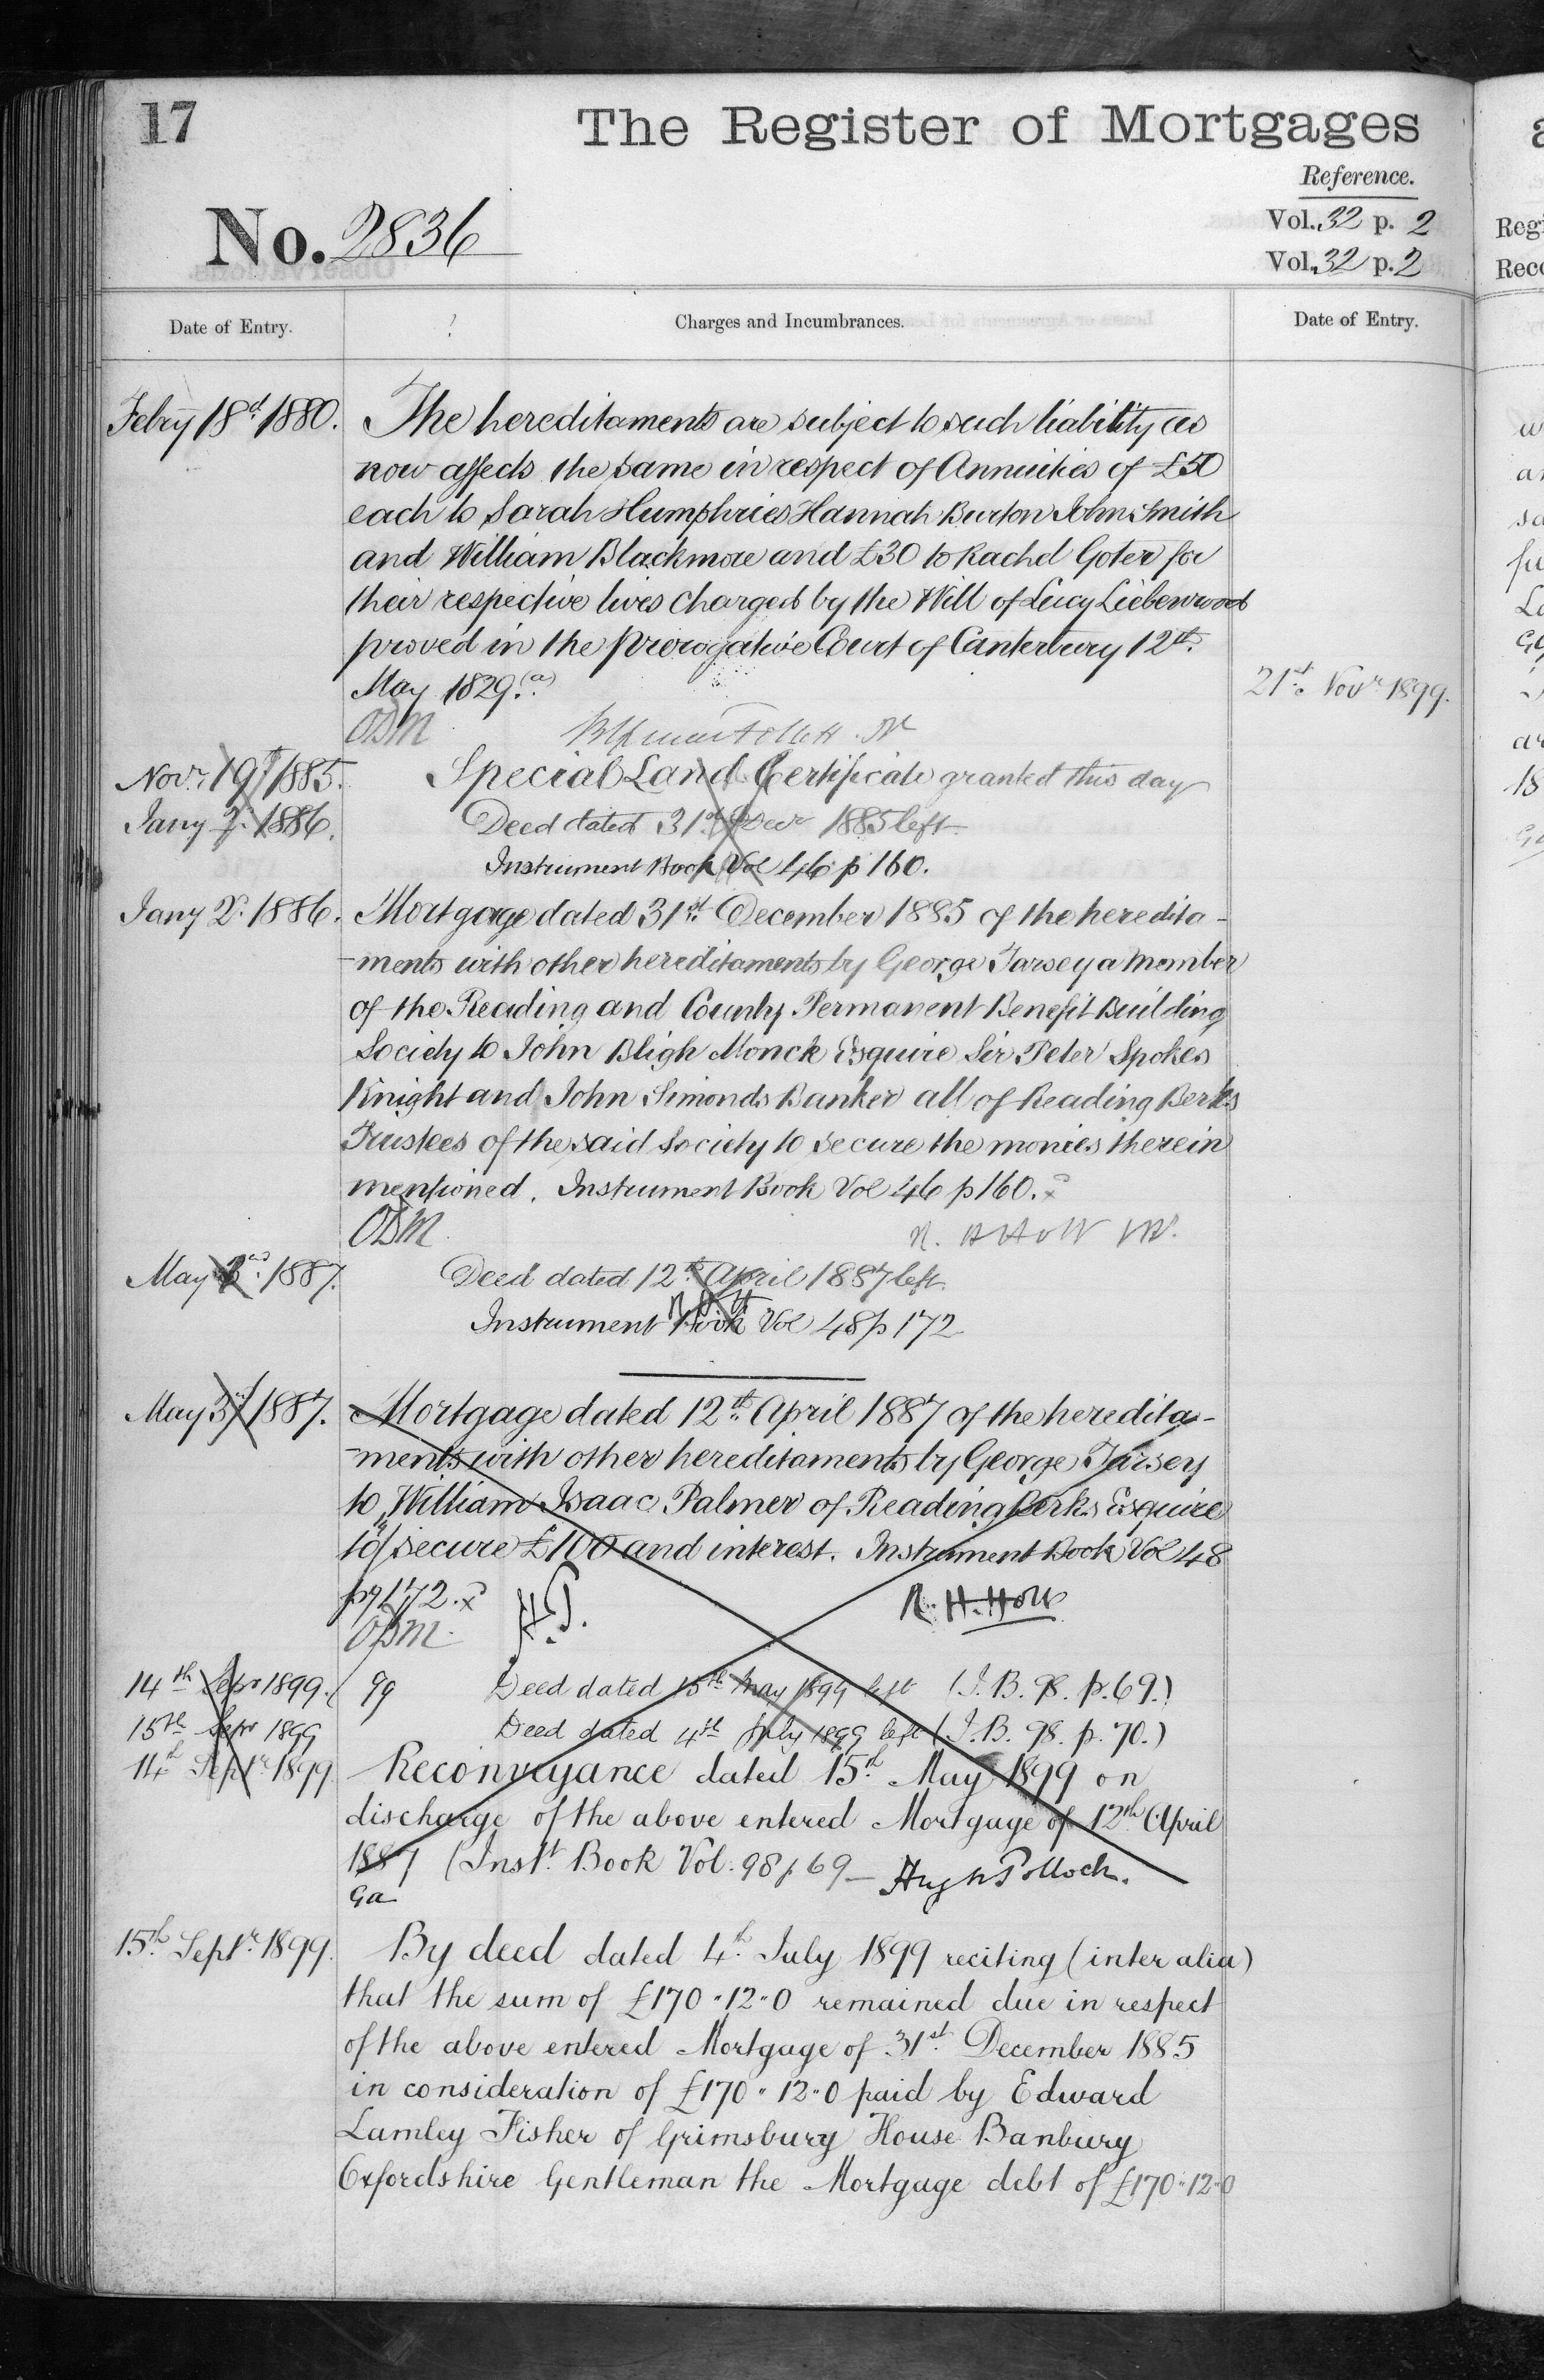 17
The Register of Mortgages
Reference.
No. 2836
Vol. 32 p. 2
Vol. 32 p. 2
Date of Entry.
Charges and Incumbrances.
Date of Entry.
Febry 18th 1880.
The hereditaments are subject to such liability as
now affects the same in respect of Annuities of £50
each to Sarah Humphries Hannah Burton John Smith
and William Blackmore and £30 to Rachel Goter for
their respective lives charged by the Will of Lucy
proved in the prerogative Court of Canterbury 12th
May 1829.(a)
21st Novr 1899.
ODM
Novr 19th 1885.
Special Land Certificate granted this day
Jany 2. 1886.
Deed dated 31st Decr 1885 left
Instrument Book Vol 46 p 160.
Jany 2. 1886.
Mortgage dated 31st December 1885 of the heredita-
-ments with other hereditaments by George Tarsey a Member
of the Reading and County Permanent Benefit Building
Society to John Bligh Monck Esquire Sir Peter Spokes
Knight and John Simonds Banker all of Reading Berks
Trustees of the said Society to secure the monies therein
mentioned. Instrument Book Vol 46 p 160.
ODM
R. H. Holt
May 1887.
Deed dated 12th April 1887 left.
Instrument Book Vol 48 p 172
May 3rd 1887.
Mortgage dated 12th April 1887 of the heredita-
-ments with other hereditaments by George Tarsey
to William Isaac Palmer of Reading Berks Esquire
to secure £100 and interest. Instrument Book Vol 48
pg 172.
ODM.
H.P.
R. H. Holt
14th Sepr 1899.
Deed dated 15th May 1899 left (I.B. 98. p. 69.)
15th Sepr 1899
Deed dated 4th July 1899 left (I.B. 98. p. 70.)
14th Septr 1899
Reconveyance dated 15th May 1899 on
discharge of the above entered Mortgage of 12th April
1887 (Inst. Book Vol. 98 p 69 — Hugh Pollock.
Ga
15th Septr 1899.
By deed dated 4th July 1899 reciting (inter alia)
that the sum of £170"12"0 remained due in respect
of the above entered Mortgage of 31st December 1885
in consideration of £170"12"0 paid by Edward
Lamley Fisher of Grimsbury House Banbury
Oxfordshire Gentleman the Mortgage debt of £170"12"0